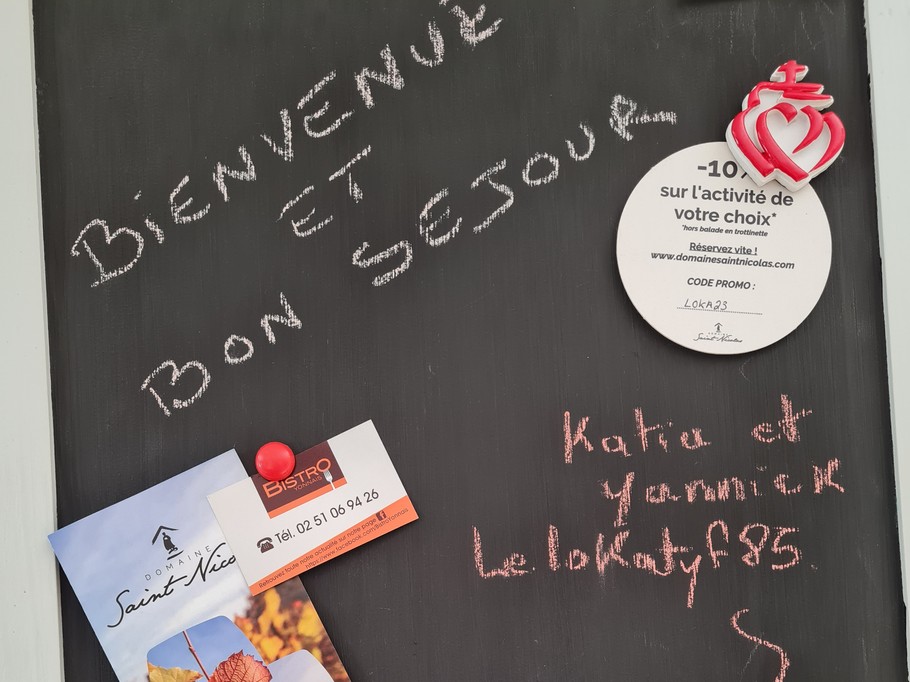 BIENVENUE
ET
BON SEJOUR
-10%
sur l'activité de
votre choix*
*hors balade en trottinette
Réservez vite !
www.domainesaintnicolas.com
CODE PROMO :
LOKA23
DOMAINE
Saint-Nicolas
Katia et
Yannick
Le lokatyf 85
BISTRO
YONNAIS
Tél. 02 51 06 94 26
Retrouvez toute notre actualité sur notre page
DOMAINE
Saint-Nico